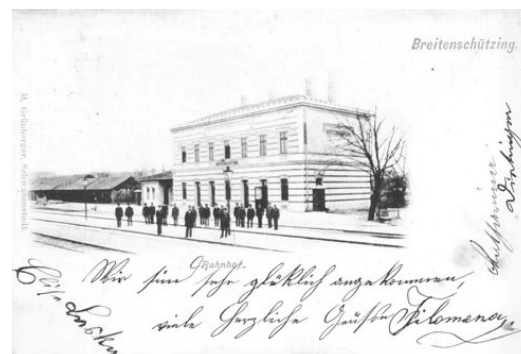 Breitenschützing.
M. Grünberger, Schwanenstadt.
Bahnhof.
Wir sind sehr glüklich angekommen,
viele Herzliche Grüße Filomena